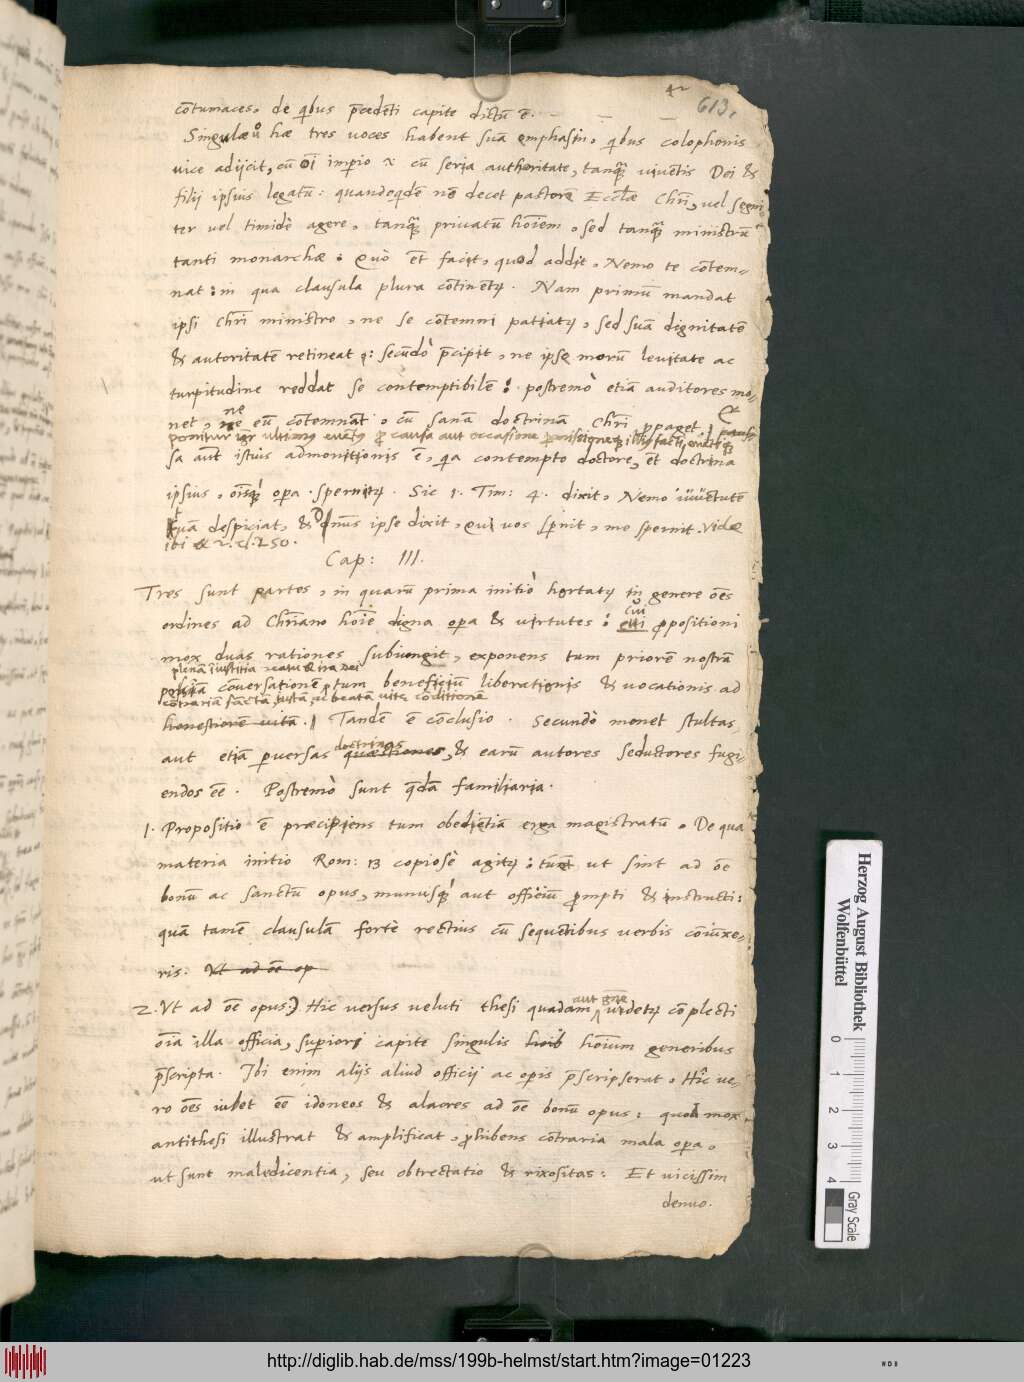 613.
cõtumaces, de qibus p̃cedẽti capite dictũ ẽ.
Singulæ hæ tres voces habent suã emphasin, qibus colophonis
vice adijcit, cũ oĩ impio & cũ seria authoritate, tanq̃ viuẽtis Dei &
filij ipsius legatũ: quandoqidẽ nõ decet pastorẽ Eccl̃æ Chr̃i, vel segni
ter vel timidè agere, tanq̃ priuatũ hoĩem, sed tanq̃ ministrũ
tanti monarchæ: Quò et̃ facit, quod addit, Nemo te cõtem-
nat: in qua clausula plura cõtinẽtꝫ. Nam primũ mandat
ipsi Chr̃i ministro, ne se cõtemni patiatꝫ, sed suã dignitatẽ
& autoritatẽ retineat: secũdò p̃cipit, ne ipse morũ leuitate ac
turpitudine reddat se contemptibilẽ: postremò etiã auditores mo-
net, ne eũ cõtemnãt, cũ sanã doctrinã Chr̃i ꝓpaget.
sa aũt istius admonitionis ẽ, qia contempto doctore, et̃ doctrina
ipsius, oĩsq̃ opa spernitꝫ. Sic 1. Tim: 4. dixit, Nemo iuuẽtutẽ
tuã despiciat, & Dn̄us ipse dixit, Qui vos sp̃nit, me spernit. Vide
ibi & 2. cl. 250.
Cap: III.
Tres sunt partes, in quarũ prima initiò hortatꝫ in genere oẽs
ordines ad Chr̃iano hoĩe digna opa & virtutes: cui ꝓpositioni
mox duas rationes subiungit, exponens tum priorẽ nostrã
plenã iniustitia reatu & ira Dei
cõuersationẽ, tum beneficiũ liberationis & vocationis ad
contrariã sanctã, iustã, ac beatã vitæ cõditionẽ
honestiorẽ vitã. Tandẽ ẽ cõclusio. Secundò monet stultas,
doctrinas
aut etiã puersas quæstiones, & earũ autores seductores fugi-
endos eẽ. Postremò sunt qædã familiaria.
1. Propositio ẽ præcipiens tum obediẽtiã erga magistratũ. De qua
materia initio Rom: 13 copiosè agitꝫ: tum ut sint ad oẽ
bonũ ac sanctũ opus, munusq̃ aut officiũ ꝓmpti & instructi:
quã tamẽ clausulã fortè rectius cũ sequẽtibus verbis cõiũxe-
ris: Vt ad oẽ op
2. Vt ad oẽ opus:) Hic versus veluti thesi quadam videtꝫ cõplecti
oĩa illa officia, supiori capite singulis hoĩum generibus
p̃scripta. Ibi enim alijs aliud officij ac opis p̃scripserat. Hîc ve-
ro oẽs iubet eẽ idoneos & alacres ad oẽ bonũ opus: quod mox
antithesi illustrat & amplificat, ꝓhibens cõtraria mala opa,
ut sunt maledicentia, seu obtrectatio & rixositas: Et vicissim
denuo.
Herzog August Bibliothek
Wolfenbüttel
0 1 2 3 4
Gray Scale
http://diglib.hab.de/mss/199b-helmst/start.htm?image=01223